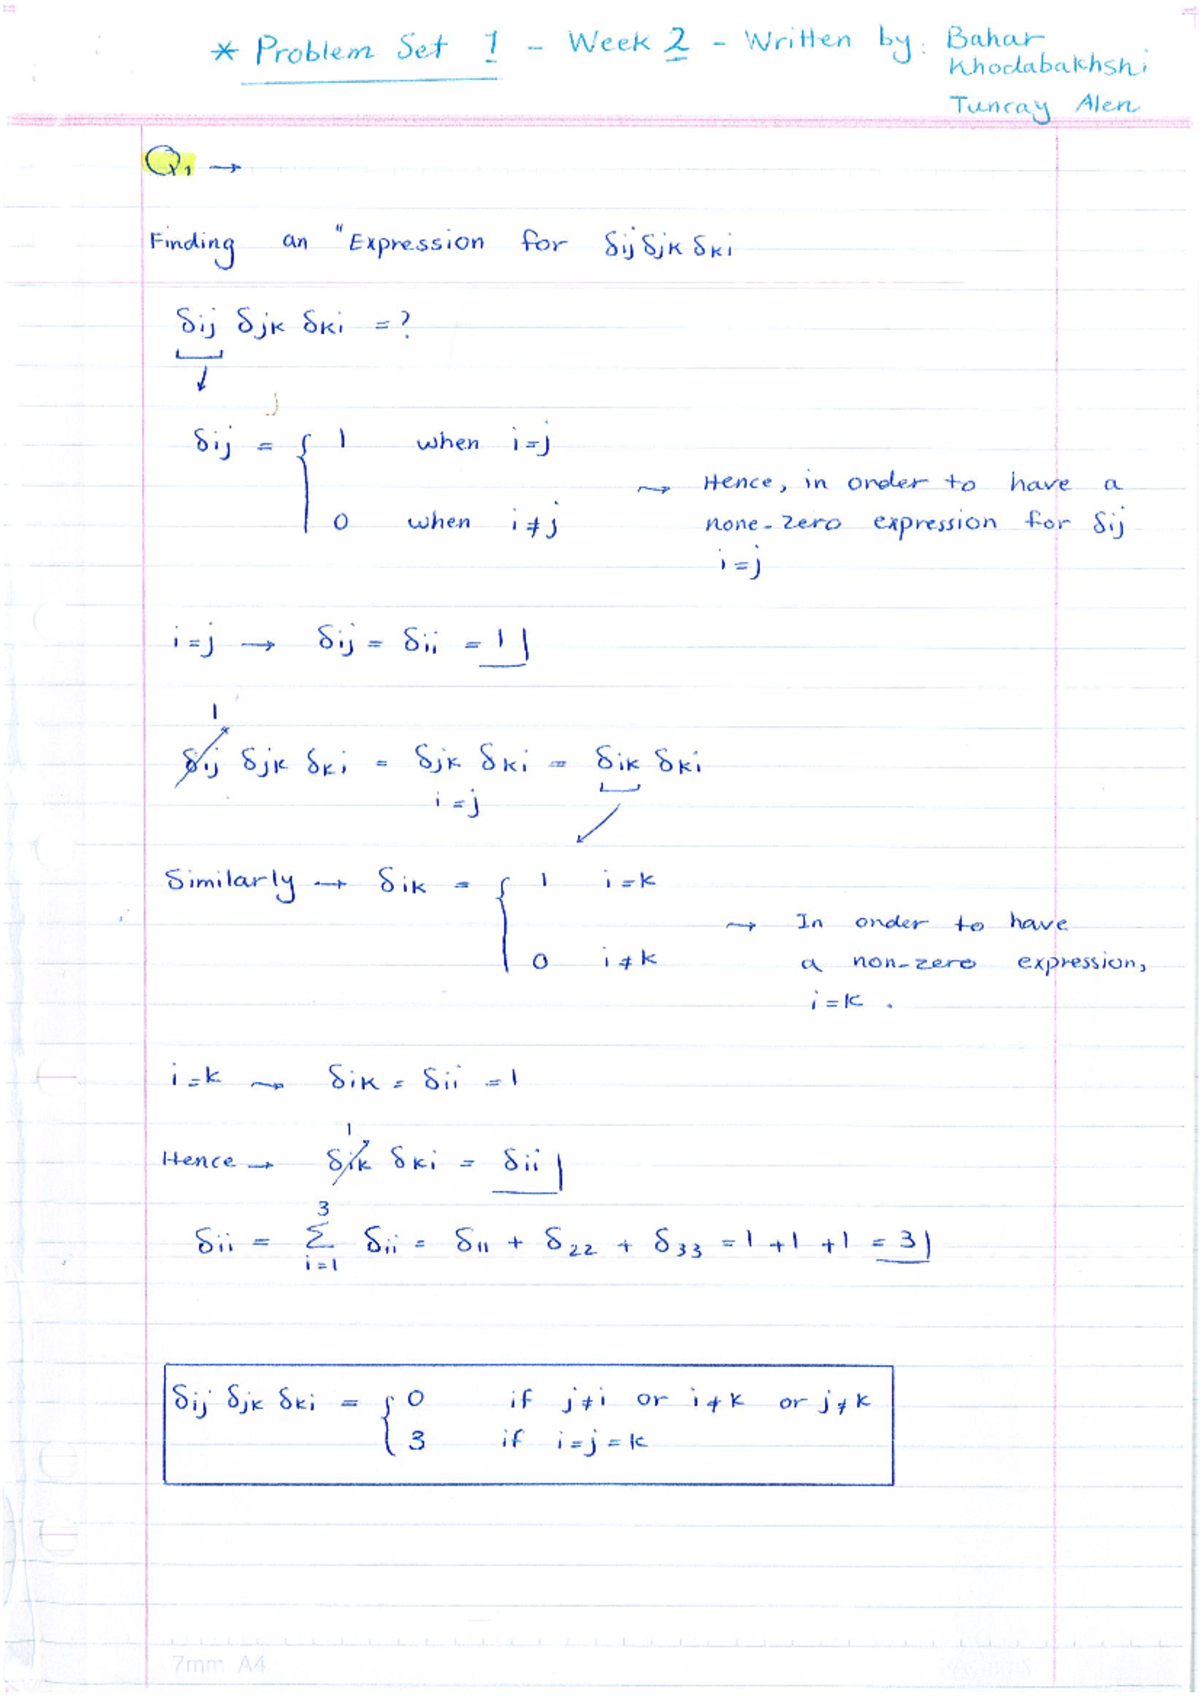 * Problem Set 1 - Week 2 - Written by: Bahar
Khodabakhshi
Tuncay Alen
Q1 →
Finding an "Expression for δij δjk δki
δij δjk δki = ?
δij = { 1 when i=j
0 when i≠j
⇝ Hence, in order to have a
none-zero expression for δij
i=j
i=j → δij = δii = 1
1
δij δjk δki = δjk δki = δik δki
i=j
Similarly → δik = { 1 i=k
0 i≠k
⇝ In order to have
a non-zero expression,
i=k.
i=k ⇝ δik = δii = 1
1
Hence → δik δki = δii
3
δii = Σ δii = δ11 + δ22 + δ33 = 1+1+1 = 3
i=1
δij δjk δki = { 0 if j≠i or i≠k or j≠k
3 if i=j=k
7mm A4